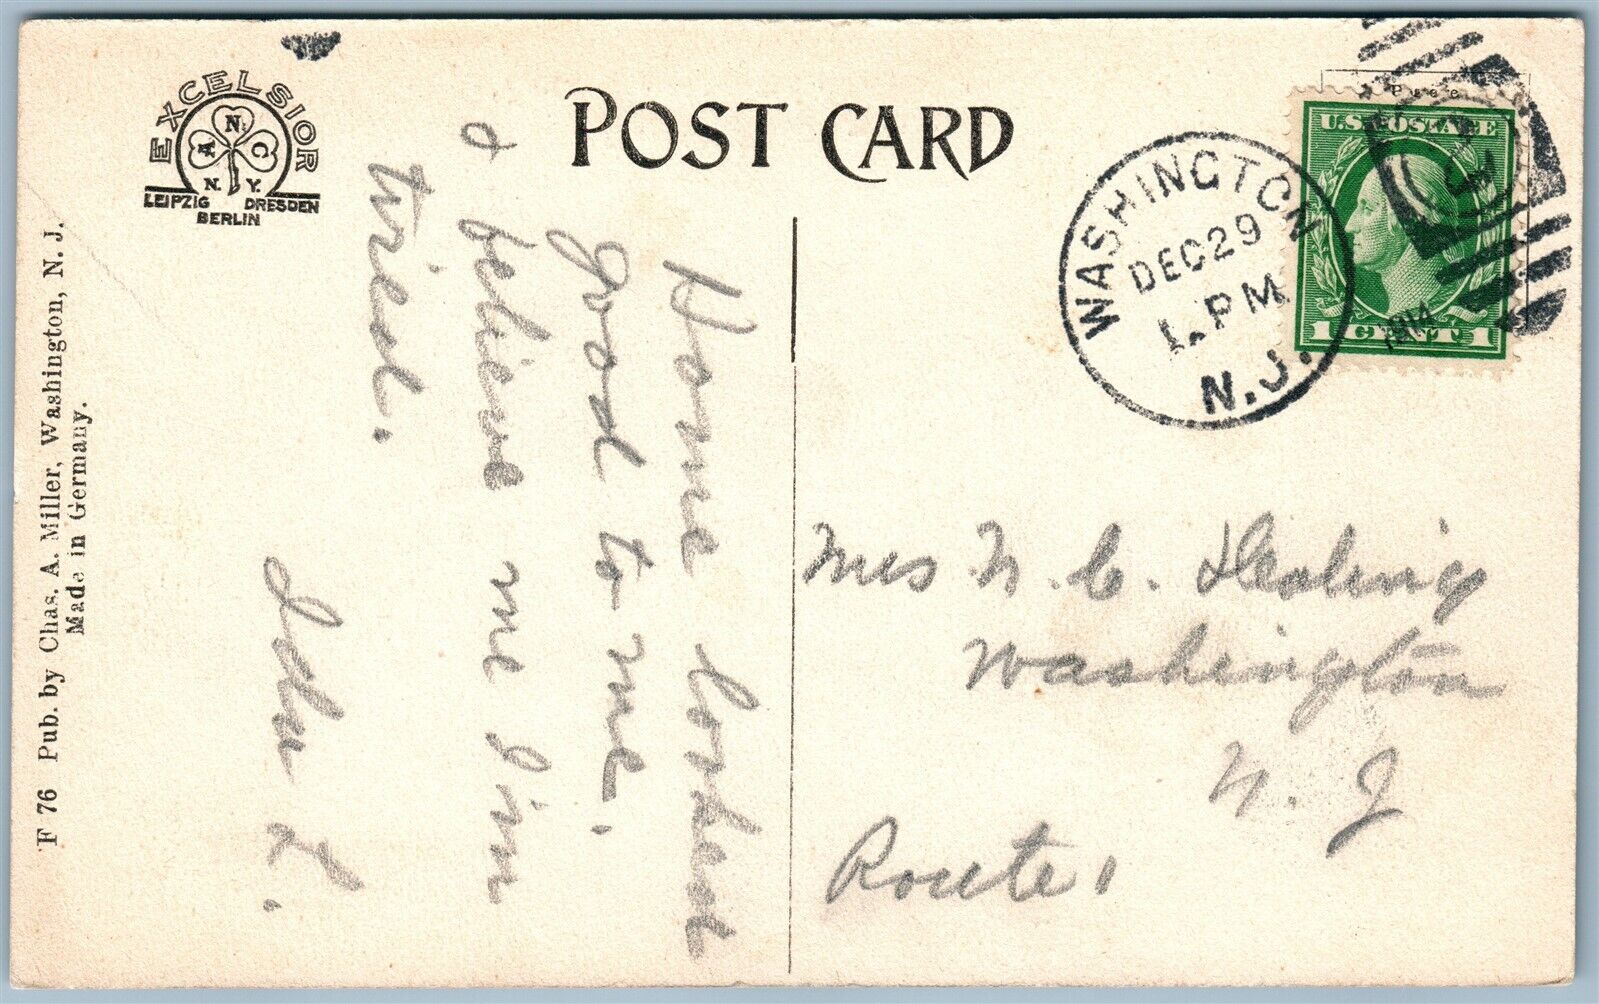 EXCELSIOR
A N C
N. Y.
LEIPZIG DRESDEN
BERLIN
POST CARD
F 76 Pub. by Chas. A. Miller, Washington, N. J.
Made in Germany.
Home looked
good to me.
& believe me I'm
tired.
L.
WASHINGTON
DEC 29
1 - PM
1914
N.J.
U.S. POSTAGE
1 CENT 1
3
Mrs N. C.
Washington
N. J
Route 1